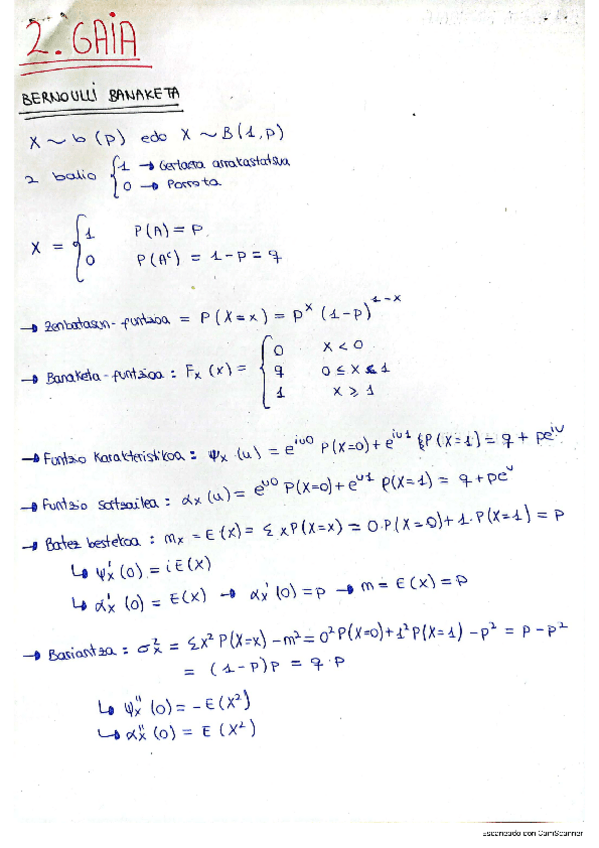 2. GAIA
BERNOULLI BANAKETA
X ~ b (p) edo X ~ B(1, p)
2 balio { 1 → Gertaera arrakastatsua
0 → Porrota
X = { 1 P(A) = p
0 P(Aᶜ) = 1-p = q
→ Zenbatasun-funtzioa = P(X=x) = pˣ (1-p)¹⁻ˣ
→ Banaketa-funtzioa : Fₓ(x) = { 0 x < 0
q 0 ≤ x < 1
1 x ≥ 1
→ Funtzio karakteristikoa : ψₓ(u) = e^{iu0} P(X=0) + e^{iu1} P(X=1) = q + pe^{iu}
→ Funtzio sortzailea : αₓ(u) = e^{u0} P(X=0) + e^{u1} P(X=1) = q + pe^{u}
→ Batez bestekoa : mₓ = E(x) = Σ x P(X=x) = 0·P(X=0) + 1·P(X=1) = p
↳ ψ'ₓ(0) = i E(X)
↳ α'ₓ(0) = E(X) → αₓ'(0) = p → m = E(X) = p
→ Bariantza : σ²ₓ = Σx² P(X=x) - m² = 0² P(X=0) + 1² P(X=1) - p² = p - p²
= (1-p)p = q·p
↳ ψ''ₓ(0) = -E(X²)
↳ α''ₓ(0) = E(X²)
Escaneado con CamScanner